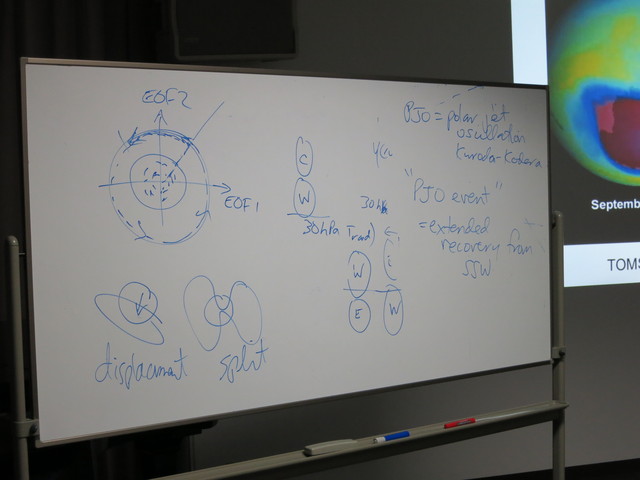 EOF2
EOF1
C
W
30hPa
30hPa
W
E
E
W
PJO = polar jet
oscillation
Kuroda-Kodera
"PJO event"
= extended
recovery from
SSW
displacement
split
Septemb
TOMS